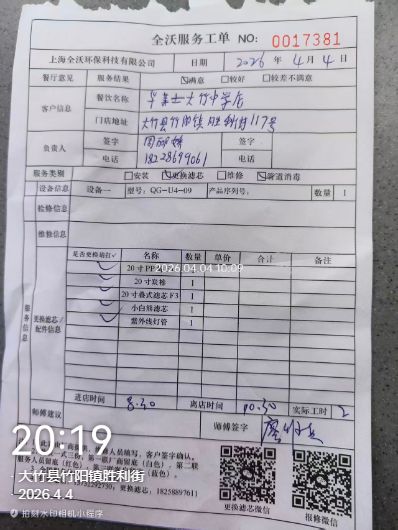 全沃服务工单 NO: 0017381
上海全沃环保科技有限公司 日期 2026年4月4日
餐厅意见 服务结果 ☑满意 □较好 □较差不满意
客户信息 餐饮名称 华莱士大竹中学店
门店地址 大竹县竹阳镇胜利街117号
负责人 签字 签字
电话 18228699061 电话
服务类别 □安装 ☑更换滤芯 □维修 ☑管道消毒
设备信息 设备一 型号: QG-U4-09 产品序列号: 数量 1
检修信息
维修信息
服务信息
更换滤芯/配件信息
是否更换请打✓ 名称 数量 单价 合计 备注
✓ 20寸PP 1
✓ 20寸炭棒 1
✓ 20寸叠式滤芯F3 1
✓ 小白筋滤芯 1
✓ 紫外线灯管 1
2026.04.04 10:09
进店时间 8:30 离店时间 10:30 实际工时 2
师傅建议 师傅签字
20:19
大竹县竹阳镇胜利街
2026.4.4
拍刻水印相机小程序
更换滤芯, 18258891761
更换滤芯微信
报修微信